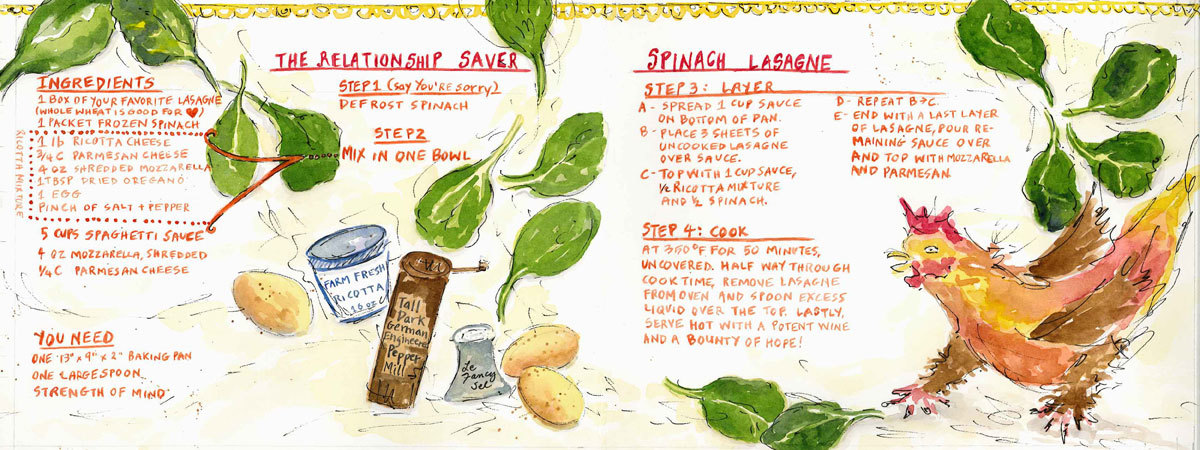 THE RELATIONSHIP SAVER
SPINACH LASAGNE
INGREDIENTS
1 BOX OF YOUR FAVORITE LASAGNE
(WHOLE WHEAT IS GOOD FOR ♥)
1 PACKET FROZEN SPINACH
RICOTTA MIXTURE
1 lb RICOTTA CHEESE
3/4 C PARMESAN CHEESE
4 OZ SHREDDED MOZZARELLA
1 TBSP DRIED OREGANO
1 EGG
PINCH OF SALT + PEPPER
5 CUPS SPAGHETTI SAUCE
4 OZ MOZZARELLA, SHREDDED
1/4 C PARMESAN CHEESE
YOU NEED
ONE 13" x 9" x 2" BAKING PAN
ONE LARGE SPOON
STRENGTH OF MIND
STEP 1 (SAY YOU'RE SORRY)
DEFROST SPINACH
STEP 2
MIX IN ONE BOWL
FARM FRESH
RICOTTA
16 OZ
Tall
Dark
German
Engineered
Pepper
Mill
Le
Fancy
Sel
STEP 3: LAYER
A - SPREAD 1 CUP SAUCE
ON BOTTOM OF PAN.
B - PLACE 3 SHEETS OF
UNCOOKED LASAGNE
OVER SAUCE.
C - TOP WITH 1 CUP SAUCE,
1/2 RICOTTA MIXTURE
AND 1/2 SPINACH.
D - REPEAT B→C.
E - END WITH A LAST LAYER
OF LASAGNE, POUR RE-
MAINING SAUCE OVER
AND TOP WITH MOZZARELLA
AND PARMESAN.
STEP 4: COOK
AT 350°F FOR 50 MINUTES,
UNCOVERED. HALF WAY THROUGH
COOK TIME, REMOVE LASAGNE
FROM OVEN AND SPOON EXCESS
LIQUID OVER THE TOP. LASTLY,
SERVE HOT WITH A POTENT WINE
AND A BOUNTY OF HOPE!